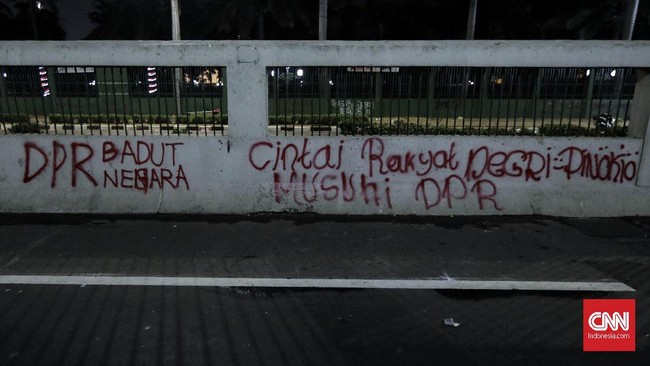 DPR BADUT
NEGARA
Cintai Rakyat NEGRI=PINOKIO
MUSUHi DPR
CNN
Indonesia.com